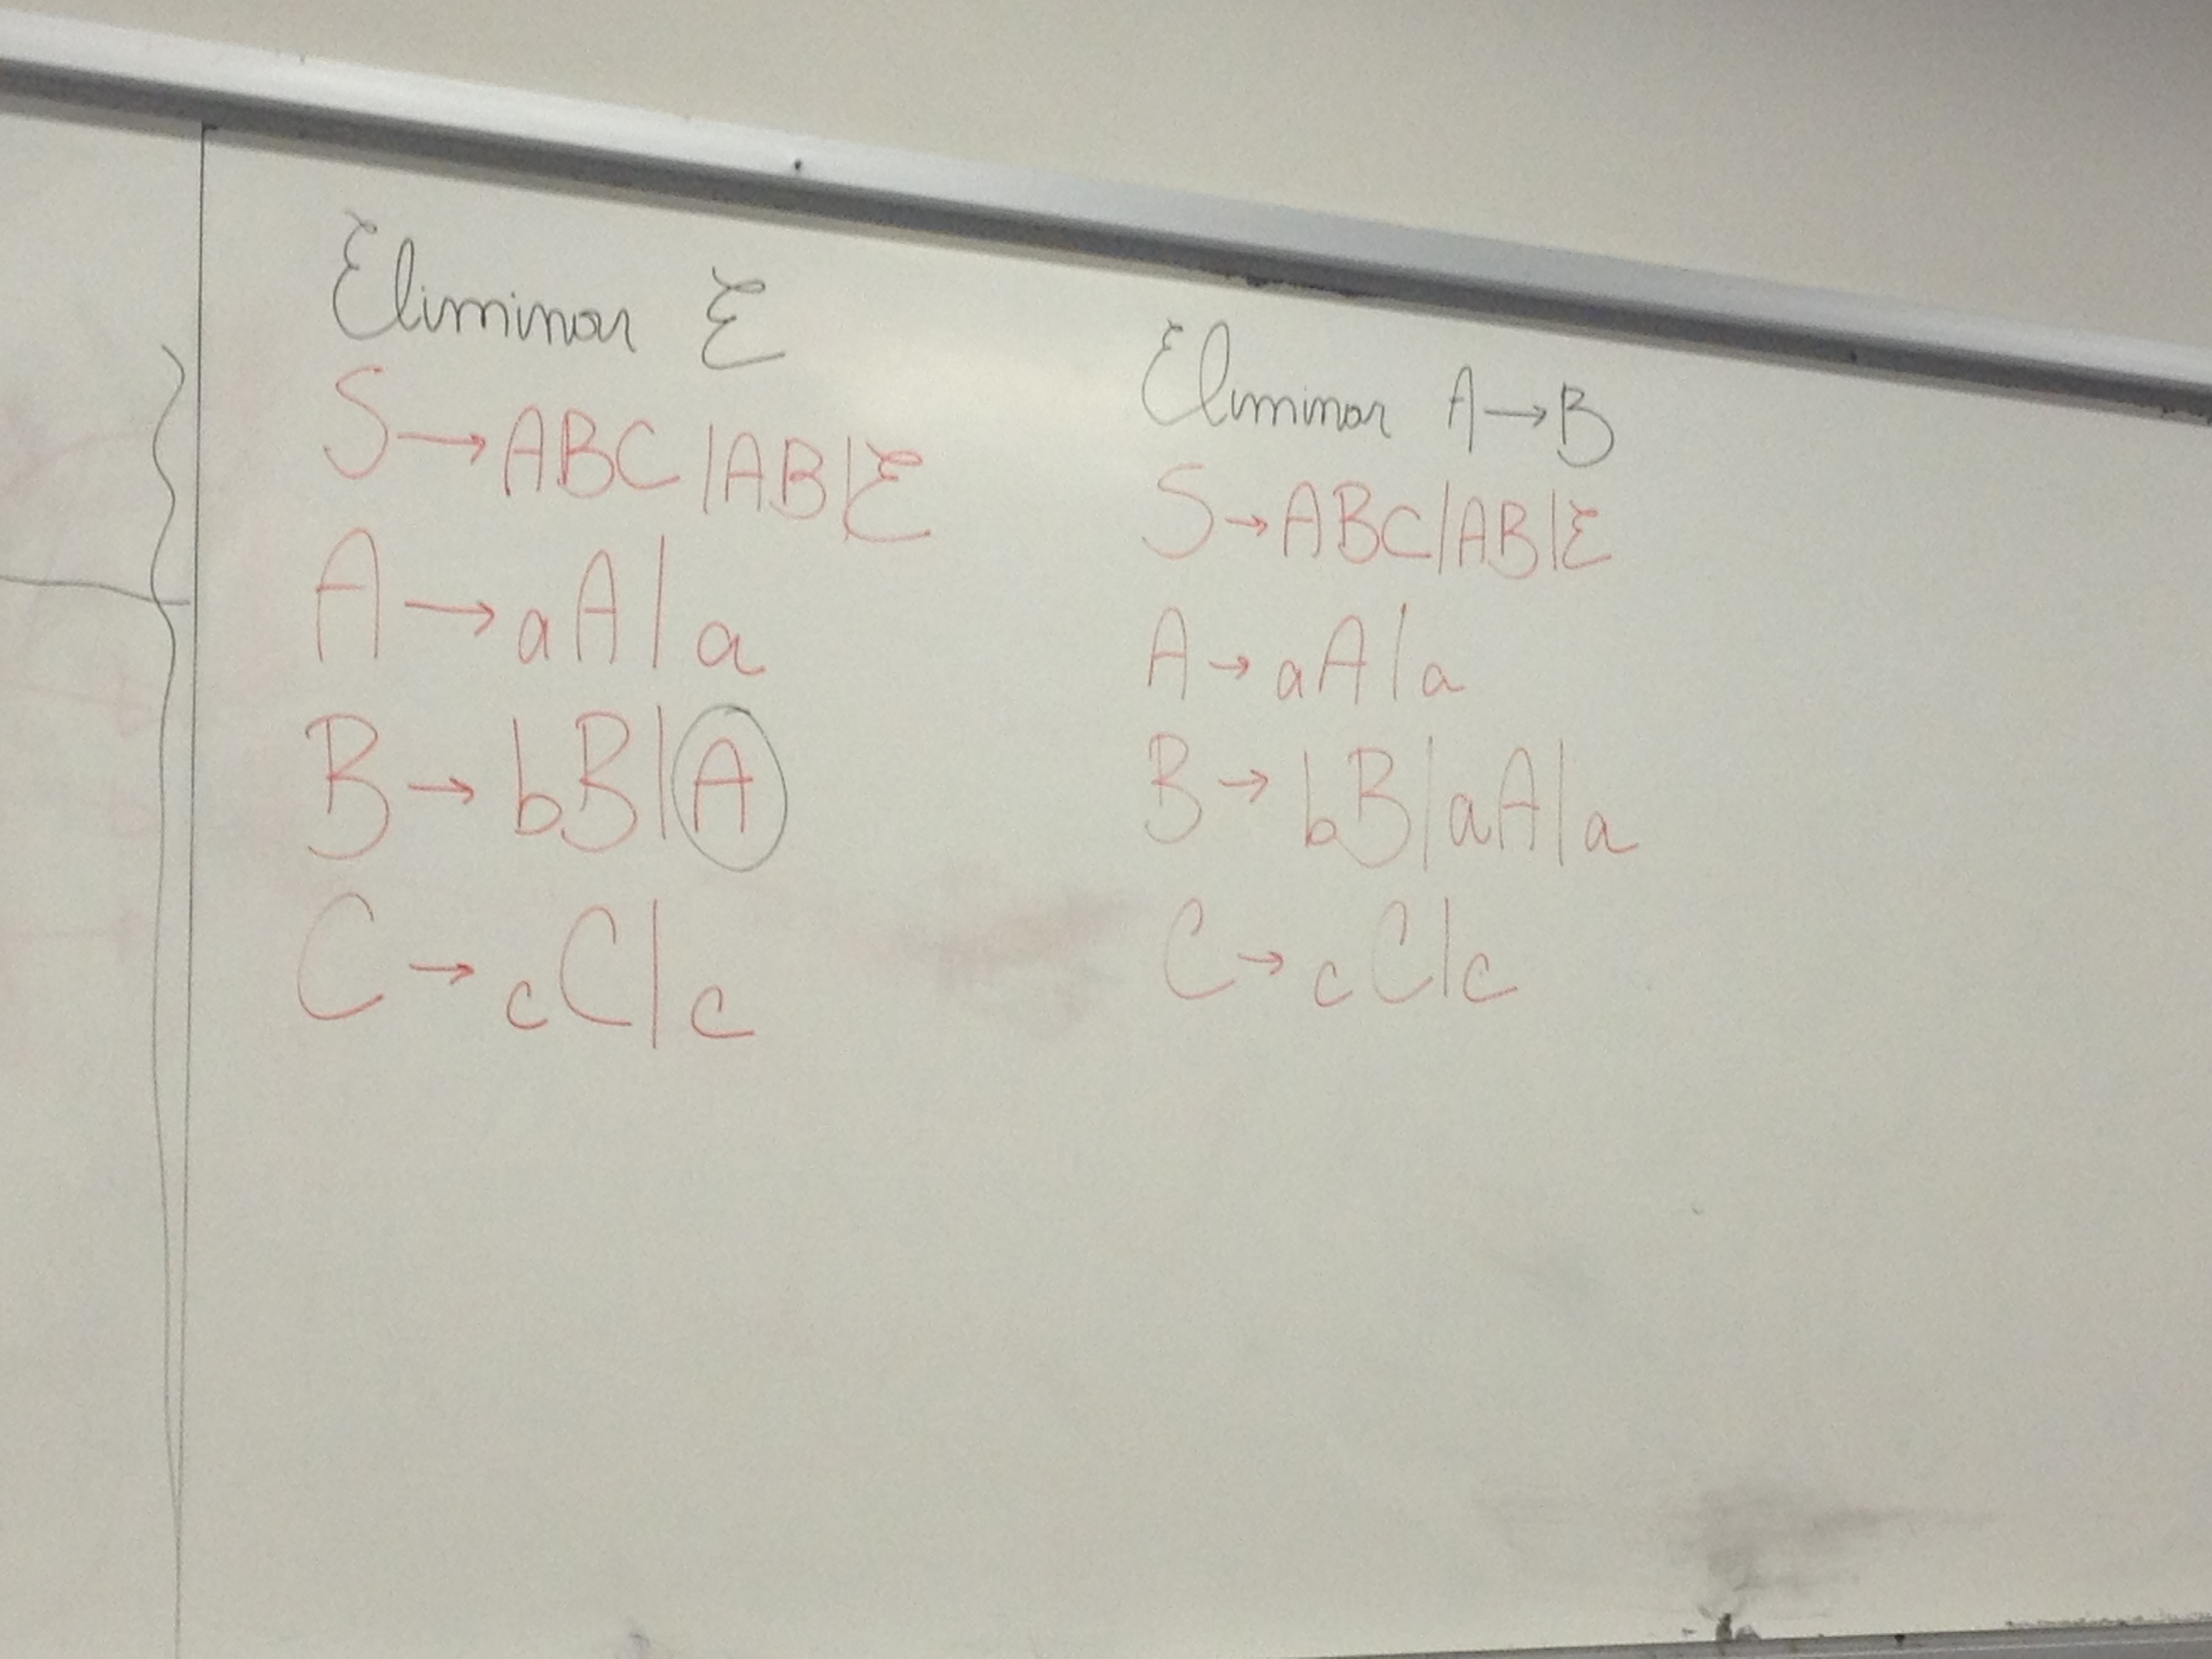 Eliminar ε
S → ABC | AB | ε
A → aA | a
B → bB | A
C → cC | c
Eliminar A → B
S → ABC | AB | ε
A → aA | a
B → bB | aA | a
C → cC | c